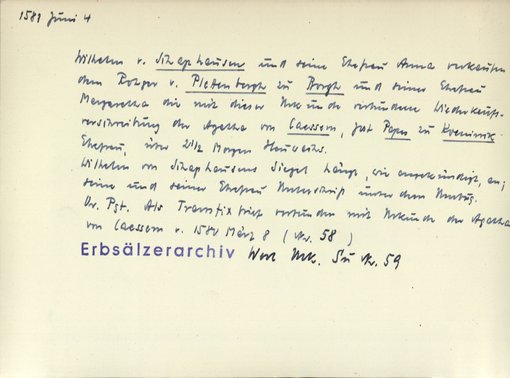 1581 Juni 4
Wilhelm v. Schaphausen und seine Ehefrau Anna verkaufen
dem Rotger v. Plettenbergh zu Borgh und seiner Ehefrau
Margaretha die mit dieser Urkunde verbundene Wiederkaufs-
verschreibung der Agatha von Laessem, Jost Papen zu
Ehefrau, über 2 1/2 Morgen
Wilhelm von Schaphausens Siegel hängt, wie angekündigt, an;
seine und seiner Ehefrau Unterschrift unter dem
Or. Pgt. Als Transfix verbunden mit Urkunde der Agatha
von Laessem v. 1580 März 8 (Nr. 58)
Erbsälzerarchiv Werl Urk. Nr. 59